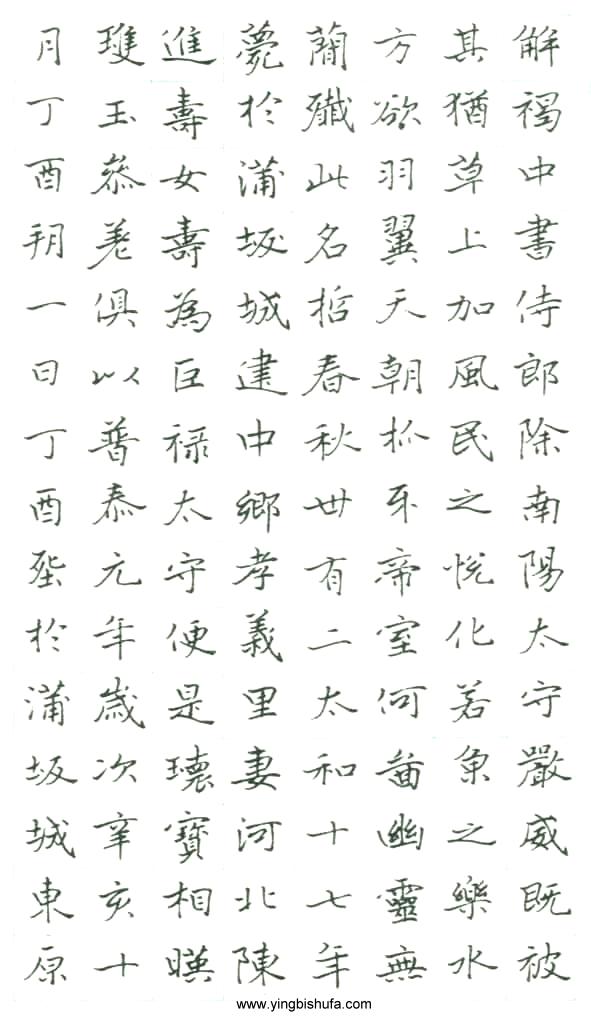 解褐中書侍郎除南陽太守嚴威既被
其猶草上加風民之悅化若魚之樂水
方欲羽翼天朝抓牙帝室何啚幽靈無
蕳殱此名哲春秋卅有二太和十七年
薨於蒲坂城建中鄉孝義里妻河北陳
進壽女壽為巨祿太守便是瓌寶相暎
瓊玉叅差俱以普泰元年歲次辛亥十
月丁酉朔一日丁酉塟於蒲坂城東原
www.yingbishufa.com